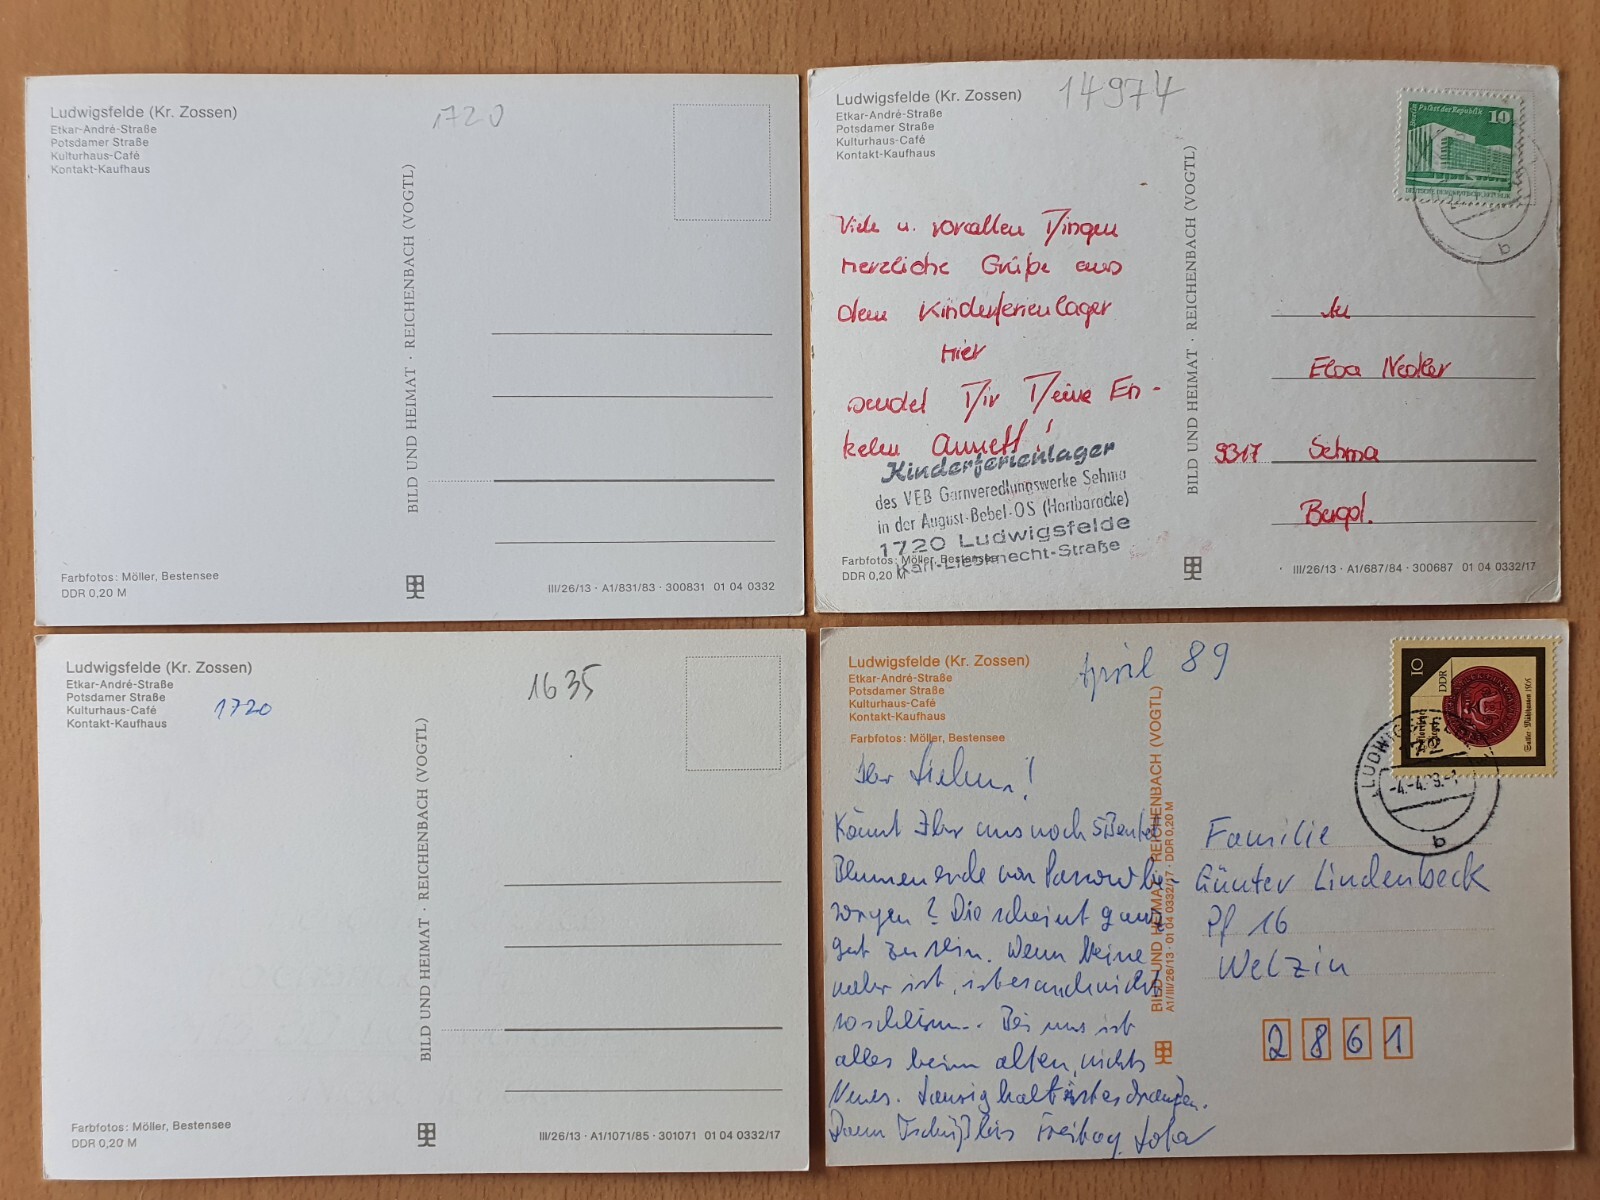 Ludwigsfelde (Kr. Zossen)
Etkar-André-Straße
Potsdamer Straße
Kulturhaus-Café
Kontakt-Kaufhaus
1720
BILD UND HEIMAT · REICHENBACH (VOGTL)
Farbfotos: Möller, Bestensee
DDR 0,20 M
III/26/13 · A1/831/83 · 300831 01 04 0332
Ludwigsfelde (Kr. Zossen)
Etkar-André-Straße
Potsdamer Straße
Kulturhaus-Café
Kontakt-Kaufhaus
14974
Berlin Palast der Republik
10
DEUTSCHE DEMOKRATISCHE REPUBLIK
b
Viele u. vorallen Dingen
herzliche Grüße aus
dem Kinderferienlager
hier
sendet Dir Deine En-
kelin Annett!
Kinderferienlager
des VEB Garnveredlungswerke Sehma
in der August-Bebel-OS (Hortbaracke)
1720 Ludwigsfelde
Karl-Liebknecht-Straße
BILD UND HEIMAT · REICHENBACH (VOGTL)
9317 Sehma
Bergpl.
Farbfotos: Möller, Bestensee
DDR 0,20 M
III/26/13 · A1/687/84 · 300687 01 04 0332/17
Ludwigsfelde (Kr. Zossen)
Etkar-André-Straße
Potsdamer Straße
Kulturhaus-Café
Kontakt-Kaufhaus
1720
1635
BILD UND HEIMAT · REICHENBACH (VOGTL)
Farbfotos: Möller, Bestensee
DDR 0,20 M
III/26/13 · A1/1071/85 · 301071 01 04 0332/17
Ludwigsfelde (Kr. Zossen)
Etkar-André-Straße
Potsdamer Straße
Kulturhaus-Café
Kontakt-Kaufhaus
Farbfotos: Möller, Bestensee
April 89
10
DDR
b
Ihr Lieben!
Könnt Ihr uns noch 5 Beutel
Blumenerde von be-
sorgen? Die scheint ganz
gut zu sein. Wenn keine
mehr ist, ist es auch nicht
so schlimm. Bei uns ist
alles beim alten, nichts
Neues. ist es draußen.
Dann Tschüß bis Freitag
BILD UND HEIMAT · REICHENBACH (VOGTL)
A1/III/26/13 · 01 04 0332/17 · DDR 0,20 M
Familie
Günter Lindenbeck
Pf 16
Welzin
2861